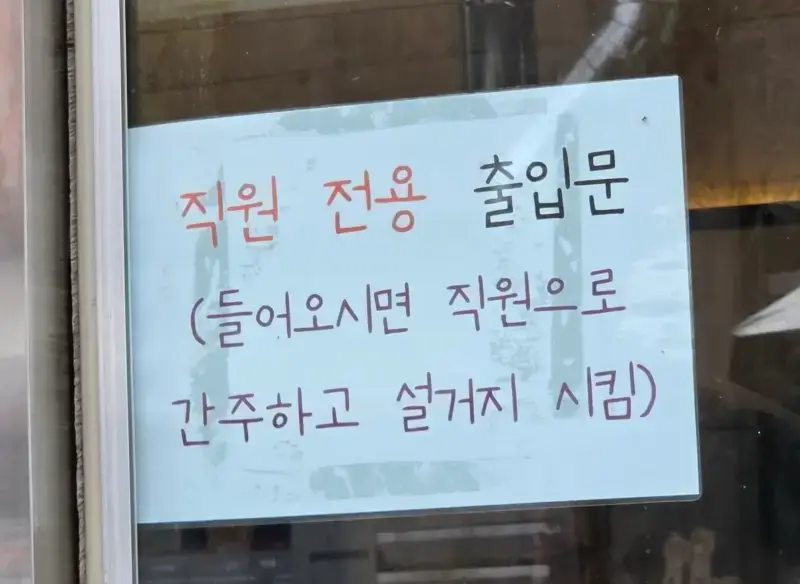 직원 전용 출입문
(들어오시면 직원으로
간주하고 설거지 시킴)